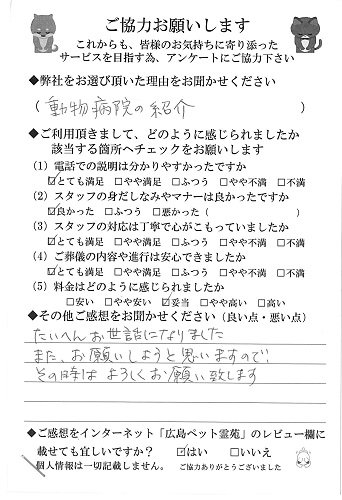 ご協力お願いします
これからも、皆様のお気持ちに寄り添った
サービスを目指す為、アンケートにご協力下さい
◆弊社をお選び頂いた理由をお聞かせください
( 動物病院の紹介 )
◆ご利用頂きまして、どのように感じられましたか
該当する箇所へチェックをお願いします
(1) 電話での説明は分かりやすかったですか
☑とても満足 □やや満足 □ふつう □やや不満 □不満
(2) スタッフの身だしなみやマナーは良かったですか
☑良かった □ふつう □悪かった ( )
(3) スタッフの対応は丁寧で心がこもっていましたか
☑とても満足 □やや満足 □ふつう □やや不満 □不満
(4) ご葬儀の内容や進行は安心できましたか
☑とても満足 □やや満足 □ふつう □やや不満 □不満
(5) 料金はどのように感じられましたか
□安い □やや安い ☑妥当 □やや高い □高い
◆その他ご感想をお聞かせください (良い点・悪い点)
たいへんお世話になりました
また、お願いしようと思いますので、
その時はよろしくお願い致します
◆ご感想をインターネット「広島ペット霊苑」のレビュー欄に
載せても宜しいですか? ☑はい □いいえ
個人情報は一切記載しません。 ご協力ありがとうございました